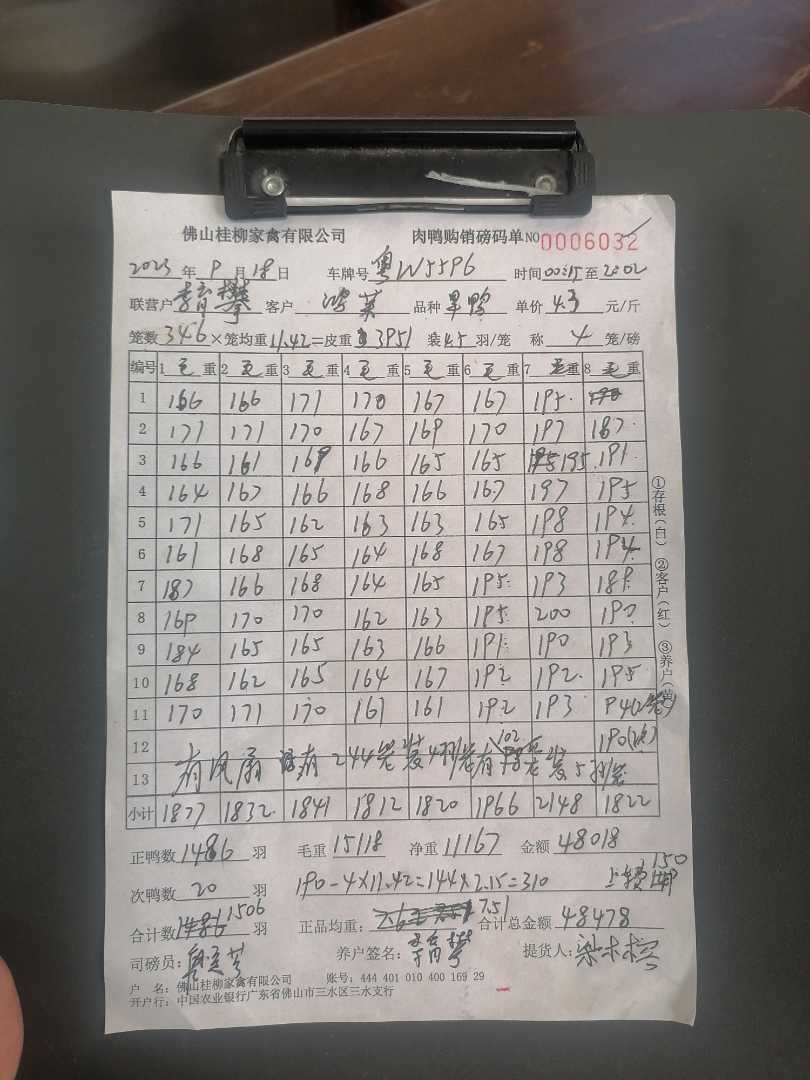 佛山桂柳家禽有限公司 肉鸭购销磅码单 NO 0006032
2023 年 9 月 18 日 车牌号 粤W5596 时间 00:15 至 2:02
联营户 客户 鸿英 品种 旱鸭 单价 4.3 元/斤
笼数 346 ×笼均重 11.42 =皮重 3951 装 4.5 羽/笼 称 4 笼/磅
编号 1 毛 重 2 毛 重 3 毛 重 4 毛 重 5 毛 重 6 毛 重 7 毛 重 8 毛 重
1 166 166 171 170 167 167 195
2 171 171 170 167 169 170 197 187
3 166 161 169 166 165 165 195 191
4 164 167 166 168 166 167 197 195
5 171 165 162 163 163 165 198 194
6 161 168 165 164 168 167 198 194
7 187 166 168 164 165 195 193 189
8 169 170 170 162 163 195 200 190
9 184 165 165 163 166 191 190 193
10 168 162 165 164 167 192 192 195
11 170 171 170 161 161 192 193 94(2笼)
12 190(次)
13 有风扇 有244笼装4羽 有102笼装5羽
小计 1877 1832 1841 1812 1820 1966 2148 1822
①存根(白) ②客户(红) ③养户(黄)
正鸭数 1486 羽 毛重 15118 净重 11167 金额 48018
次鸭数 20 羽 190-4×11.42=144×2.15=310 150
合计数 1506 羽 正品均重: 7.51 合计总金额 48478
司磅员: 养户签名: 提货人:
户 名: 佛山桂柳家禽有限公司 账号: 444 401 010 400 169 29
开户行: 中国农业银行广东省佛山市三水区三水支行